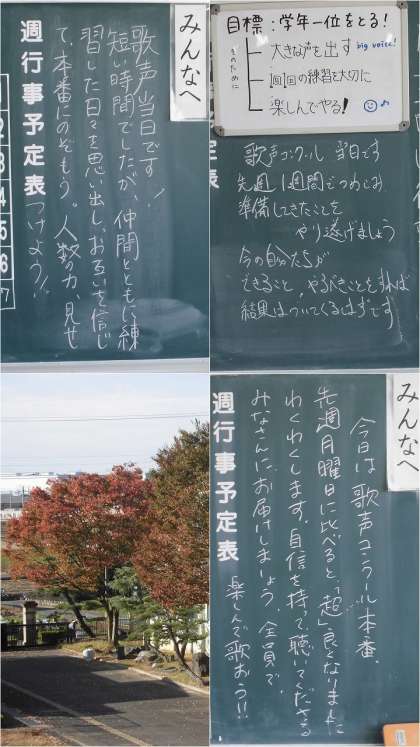 みんなへ
歌声当日です!
短い時間でしたが、仲間とともに練
習した日々を思い出し、お互いを信じ
て、本番にのぞもう。人数の力、見せ
つけよう!!
週行事予定表
2
3
4
5
6
7
目標:学年一位をとる!
そのために
大きな声を出す big voice!
1回1回の練習を大切に
楽しんでやる!
歌声コンクール 当日です
先週1週間でつめこみ
準備してきたことを
やり遂げましょう
今の自分たちが
できること、やるべきことをすれば
結果はついてくるはずです
みんなへ
今日は歌声コンクール本番、
先週月曜日に比べると、「超」良くなりました
わくわくします。自信を持って、聴いてくださる
みなさんにお届けしましょう。全員で、
楽しんで歌おう!!
週行事予定表